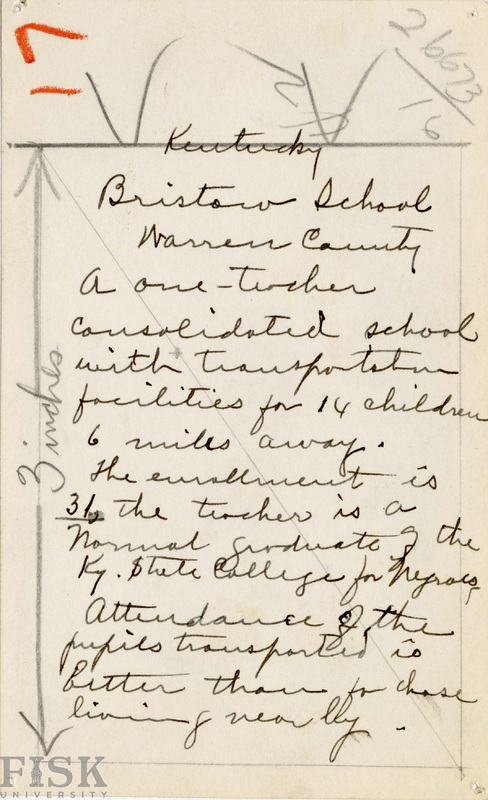 17
26673
16
Kentucky
Bristow School
Warren County
A one-teacher
consolidated school
with transportation
facilities for 14 children
6 miles away.
The enrollment is
31, the teacher is a
Normal graduate of the
Ky. State College for Negroes,
Attendance of the
pupils transported is
better than for those
living near by.
3 inches
FISK
UNIVERSITY